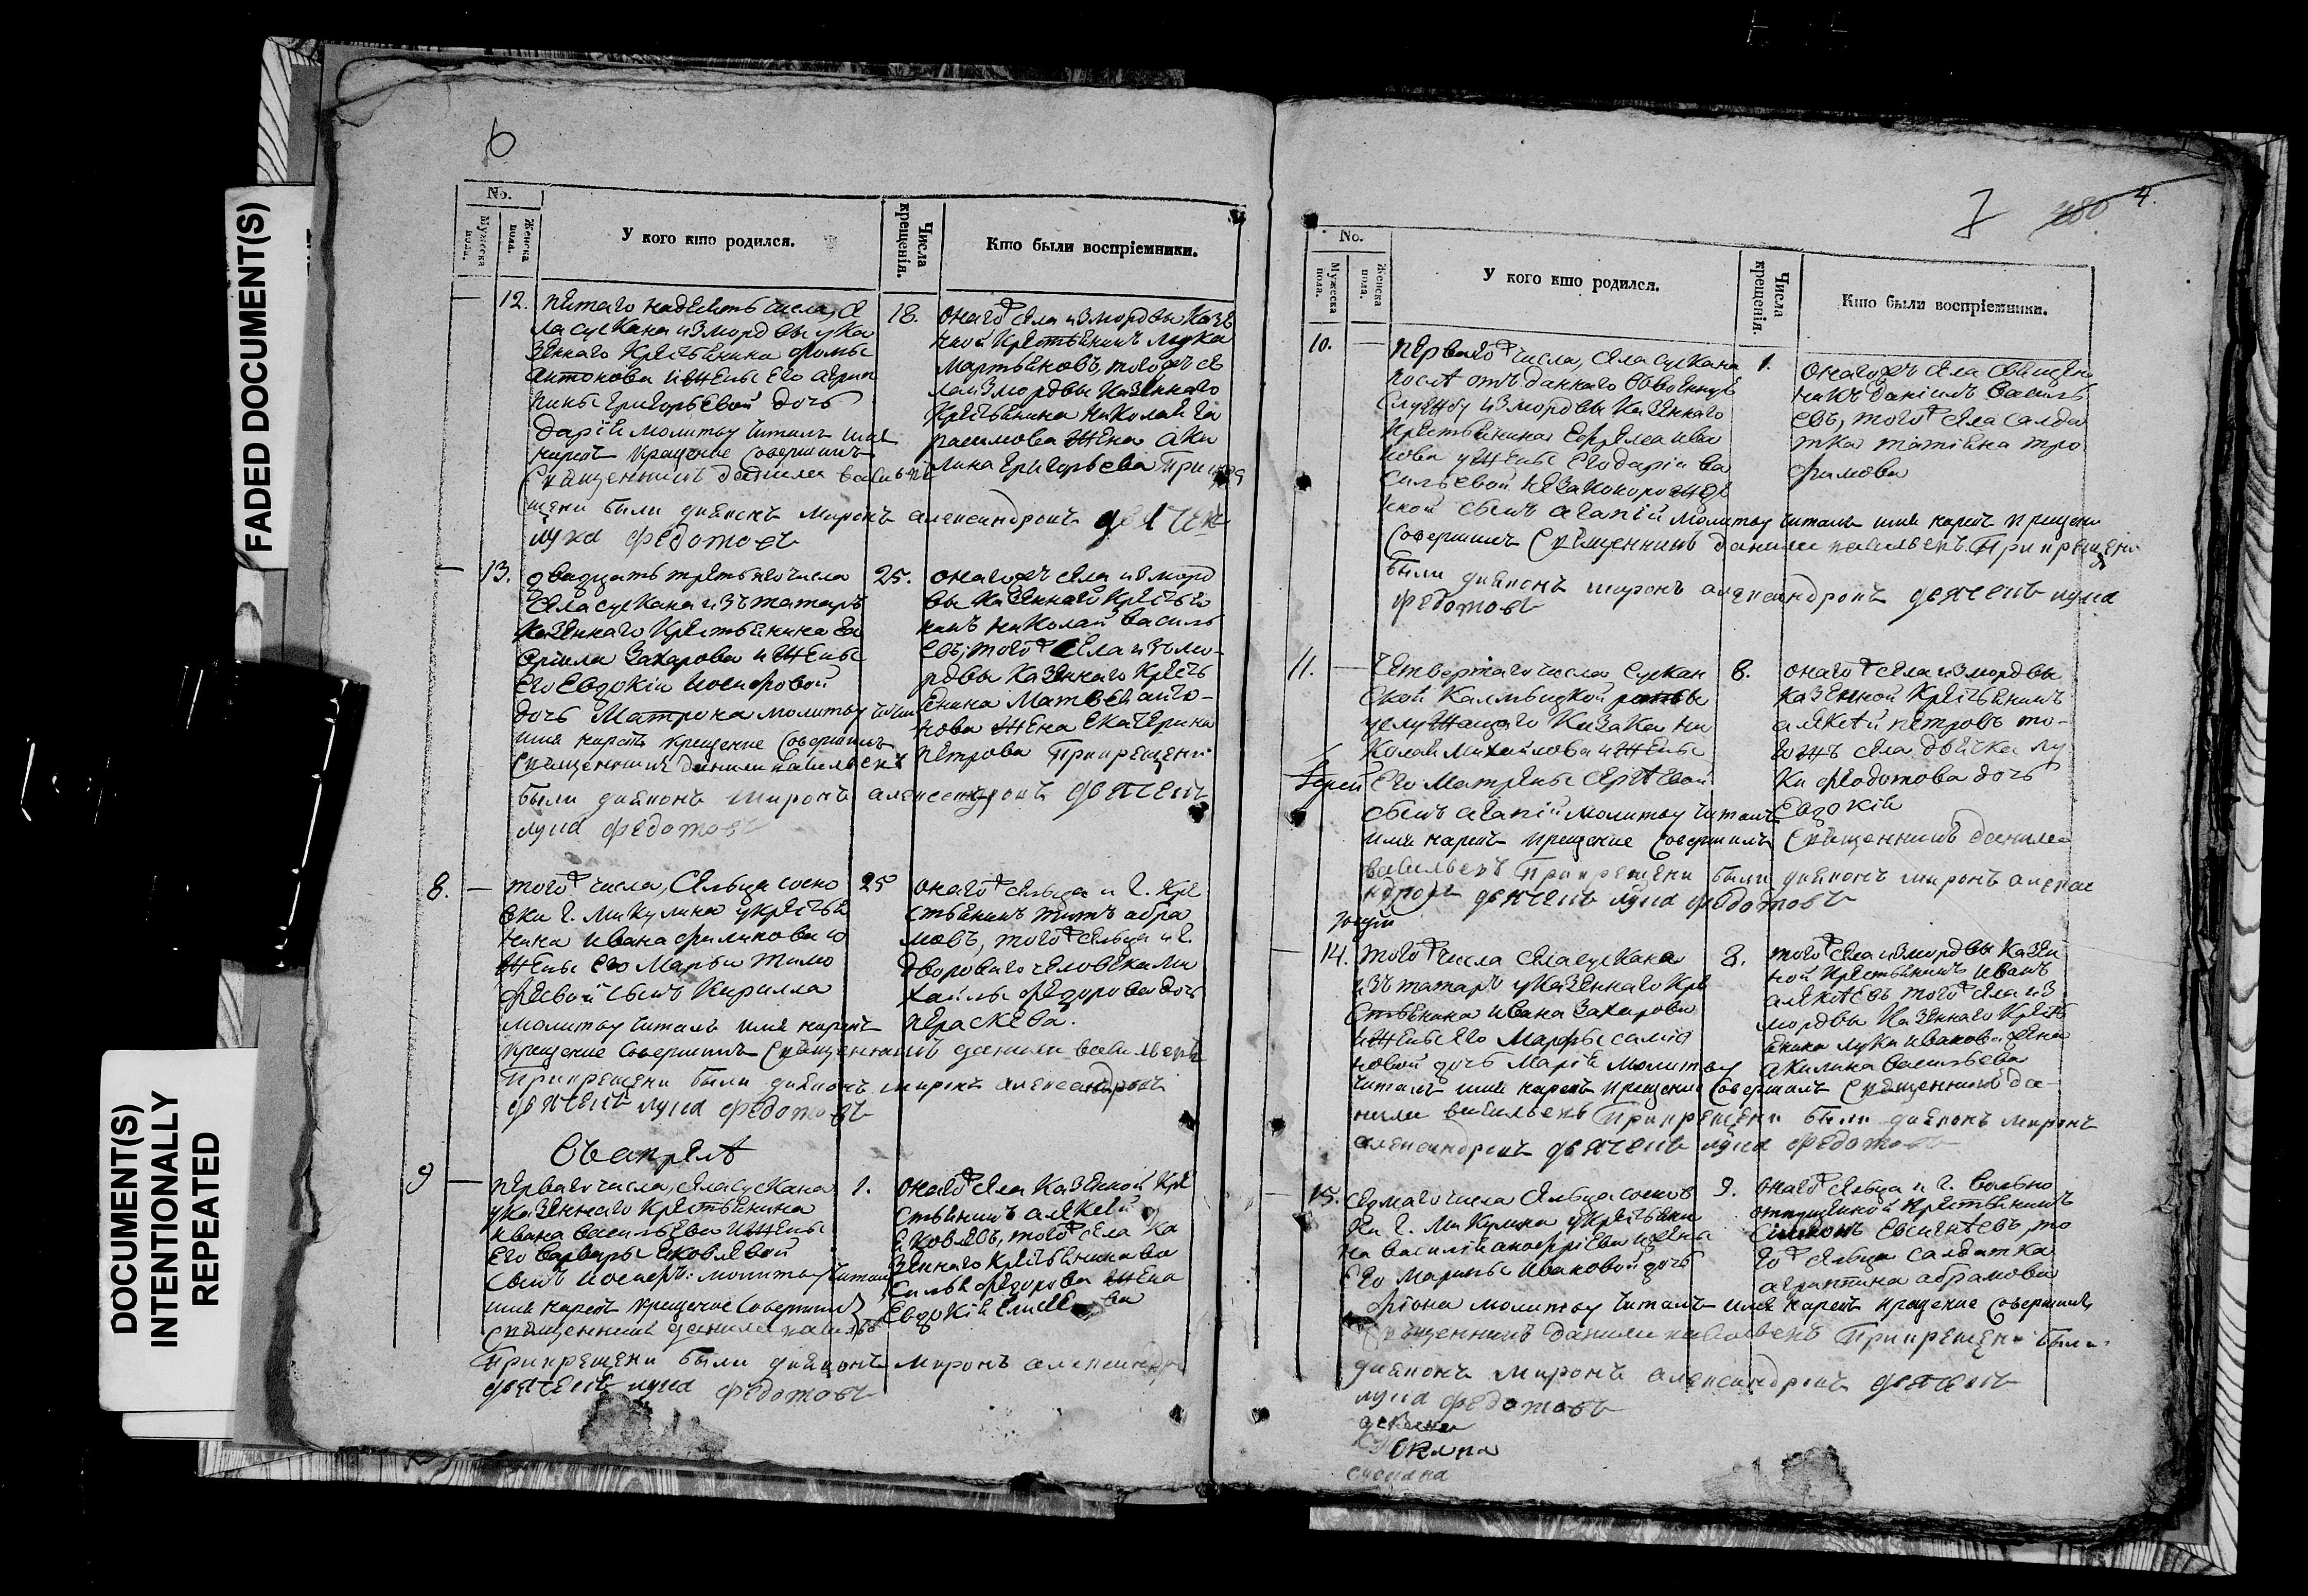 FADED DOCUMENT(S)
DOCUMENT(S)
INTENTIONALLY
REPEATED
6
No.
Мужеска пола.
Женска пола.
У кого кто родился.
Числа крещенія.
Кто были воспріемники.
12. пятаго надесять числа, се
ла сускана из мордвы у ка
зеннаго крестьянина фомы
антонова и жены его агрип
пины григорьевой дочь
дарія молитву читалъ имя
нарекъ крещение совершилъ
священникъ данила
щени были диаконъ миронъ александровъ дьячекъ
лука федотовъ
18. онагож села из мордвы казе
ной крестьянинъ лука
мартыновъ, тогожъ се
ла из мордвы казеннаго
крестьянина николая га
расимова жена аки
лина григорьева При кре
13. двадцать третьяго числа
села сускана изъ татаръ
казеннаго крестьянина га
врила захарова и жены
его евдокіи иосифовой
дочь Матрона молитву читал
имя нарекъ крещение совершилъ
священникъ данила васильевъ
были диаконъ миронъ александровъ дьячекъ
лука федотовъ
25. онагожъ села из морд
вы казеннаго крестья
нинъ николай василь
евъ, тогож села изъ мо-
рдвы казеннаго кресть
янина Матвея анто-
нова жена екатерина
петрова При крещени
8. тогож числа, сельца сосно
вки г. микулина у крестья
нина ивана филипова и
жены его Марьи тимо
феевой сынъ кирилла
молитву читалъ имя нарекъ
крещение совершилъ священникъ данила васильевъ
При крещени были диаконъ миронъ александровъ
дьячекъ лука федотовъ
25 онагож сельца и г. кре
стьянинъ титъ абра
мовъ, тогож сельца и г.
двороваго человека ми
хайлы федорова дочь
параскева.
Въ апреле
9 перваго числа, села сускана
у казеннаго крестьянина
ивана васильева и жены
его варвары яковлевой
сынъ иосифъ: молитву читал
имя нарекъ крещение совершилъ
священникъ данила
При крещени были диаконъ миронъ александро
дьячекъ лука федотовъ
1. онагож села казенной кре
стьянинъ алексей
яковлевъ, тогож села ка
зеннаго крестьянина ва
силья федорова жена
евдокія
7 4.
No.
Мужеска пола.
Женска пола.
У кого кто родился.
Числа крещенія.
Кто были воспріемники.
10. перваго числа, села сускана
после отъ даннаго в военную
службу из мордвы казеннаго
крестьянина ефрема ива
нова у жены его даріи ва
сильевой незаконорожде
ной сынъ агапій молитву читалъ имя нарекъ крещени
совершилъ священникъ данила васильевъ. При крещени
были диаконъ миронъ александровъ дьячекъ лука
федотовъ
1. онагожъ села священ
никъ даніилъ василь
евъ, тогож села салда
тка татіяна тро
фимова
11. четвертаго числа сускан
ской калмыцкой роты
у служащаго казака ни
колая михайлова и жены
его Матрены сергеевой
сынъ агапій молитву читалъ
имя нарекъ крещение совершилъ священникъ данила
васильевъ При крещени были диаконъ миронъ алексан
дровъ дьячекъ лука федотовъ
8. онагож села из мордвы
казенной крестьянинъ
алексей петровъ то-
гожъ села дьячка лу
ки федотова дочь
евдокія
14. тогож числа села сускана
изъ татаръ у казеннаго кре
стьянина ивана захарова
и жены его Марфы
новой дочь Марія молитву
читалъ имя нарекъ крещение совершилъ священникъ да-
нила васильевъ При крещени были диаконъ миронъ
александровъ дьячекъ лука федотовъ
8. тогож села из мордвы казен
ной крестьянинъ иванъ
алексеевъ тогож села из
мордвы казеннаго кресть
янина луки иванова жена
акилина васильева
15. седмаго числа сельца соснов
ки г. микулина у крестьяни
на василія анофріева и жены
его Марины ивановой дочь
молитву читалъ имя нарекъ крещение совершилъ
священникъ данила васильевъ При крещени были
диаконъ миронъ александровъ дьячекъ
лука федотовъ
9. онагож сельца и г. вольно
отпущеной крестьянинъ
то
гож сельца салдатка
агрипина абрамова